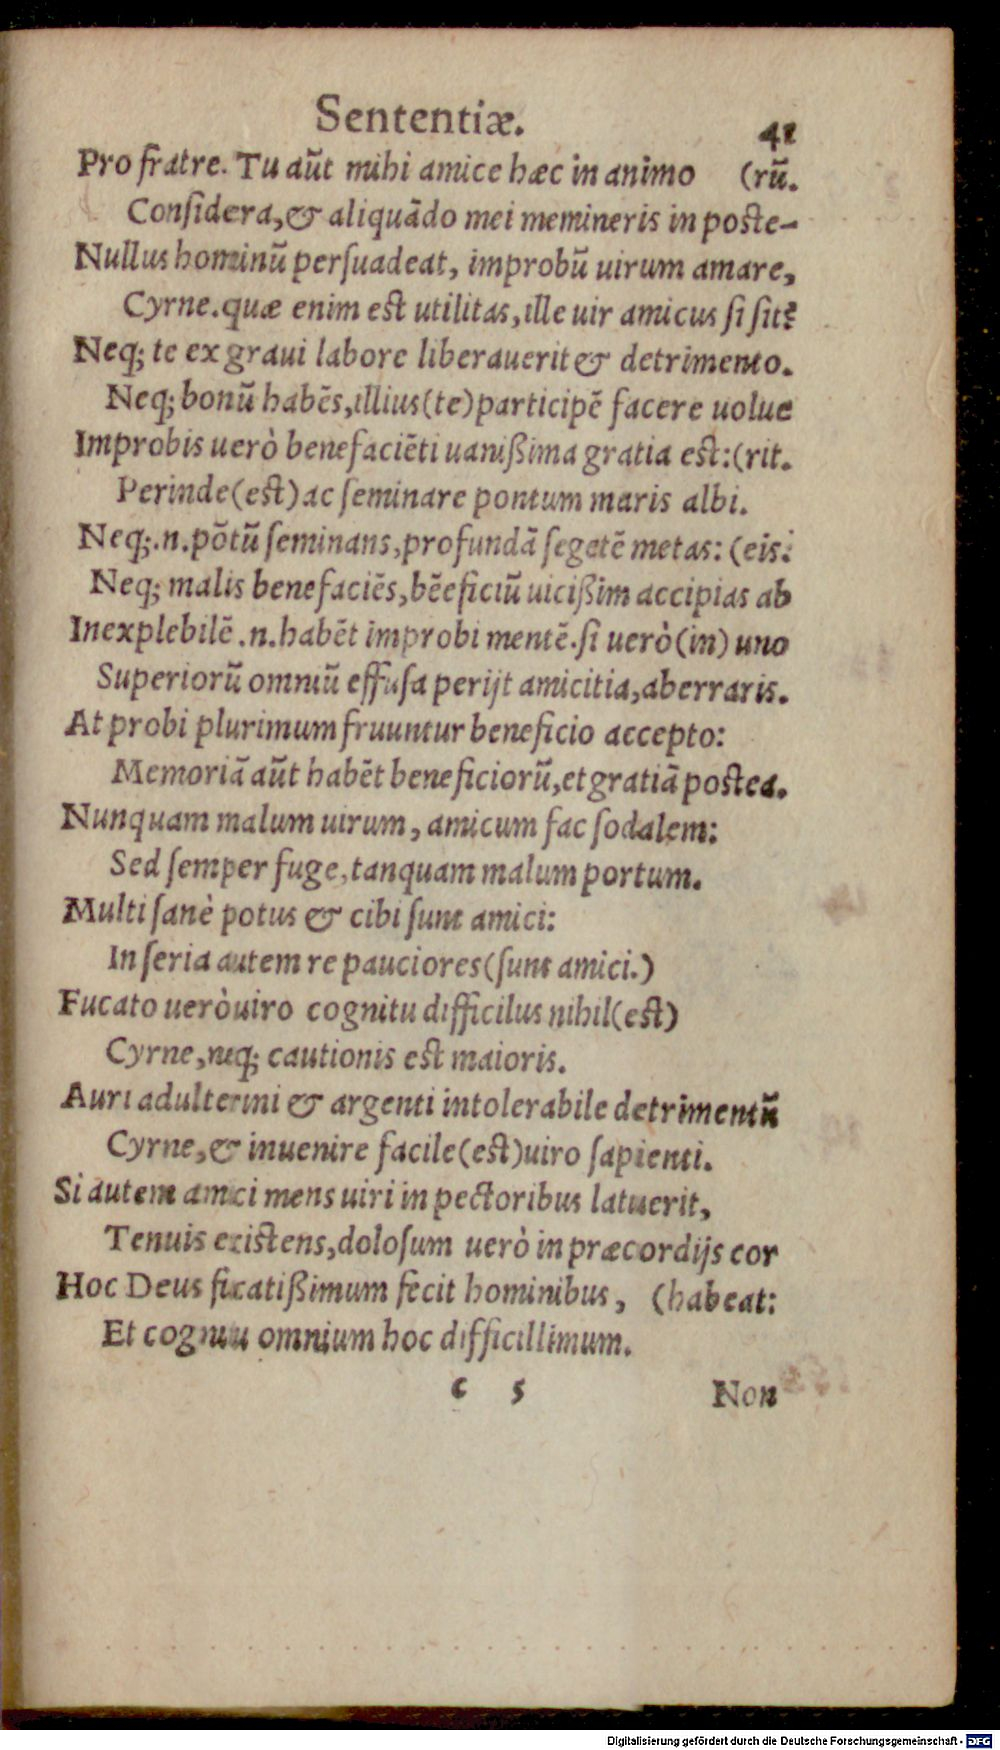 Sententiæ. 41
Pro fratre. Tu aũt mihi amice hæc in animo (rũ.
Conſidera,& aliquãdo mei memineris in poſte-
Nullus hominũ perſuadeat, improbũ uirum amare,
Cyrne.quæ enim eſt utilitas,ille uir amicus ſi ſit?
Neq; te ex graui labore liberauerit & detrimento.
Neq; bonũ habẽs,illius(te)participẽ facere uolue
Improbis uerò benefaciẽti uanißima gratia eſt:(rit.
Perinde(eſt)ac ſeminare pontum maris albi.
Neq;.n.põtũ ſeminans,profundã ſegetẽ metas: (eis:
Neq; malis benefaciẽs,bẽeficiũ uicißim accipias ab
Inexplebilẽ .n.habẽt improbi mentẽ.ſi uerò(in) uno
Superiorũ omniũ effuſa perijt amicitia,aberraris.
At probi plurimum fruuntur beneficio accepto:
Memoriã aũt habẽt beneficiorũ,et gratiã poſtea.
Nunquam malum uirum, amicum fac ſodalem:
Sed ſemper fuge,tanquam malum portum.
Multi ſanè potus & cibi ſunt amici:
In ſeria autem re pauciores(ſunt amici.)
Fucato uerò uiro cognitu difficilus nihil(eſt)
Cyrne,neq; cautionis eſt maioris.
Auri adulterini & argenti intolerabile detrimentũ
Cyrne,& inuenire facile(eſt)uiro ſapienti.
Si autem amici mens uiri in pectoribus latuerit,
Tenuis existens,doloſum uerò in præcordijs cor
Hoc Deus fucatißimum fecit hominibus, (habeat:
Et cognitu omnium hoc difficillimum.
c 5 Non
Digitalisierung gefördert durch die Deutsche Forschungsgemeinschaft - DFG